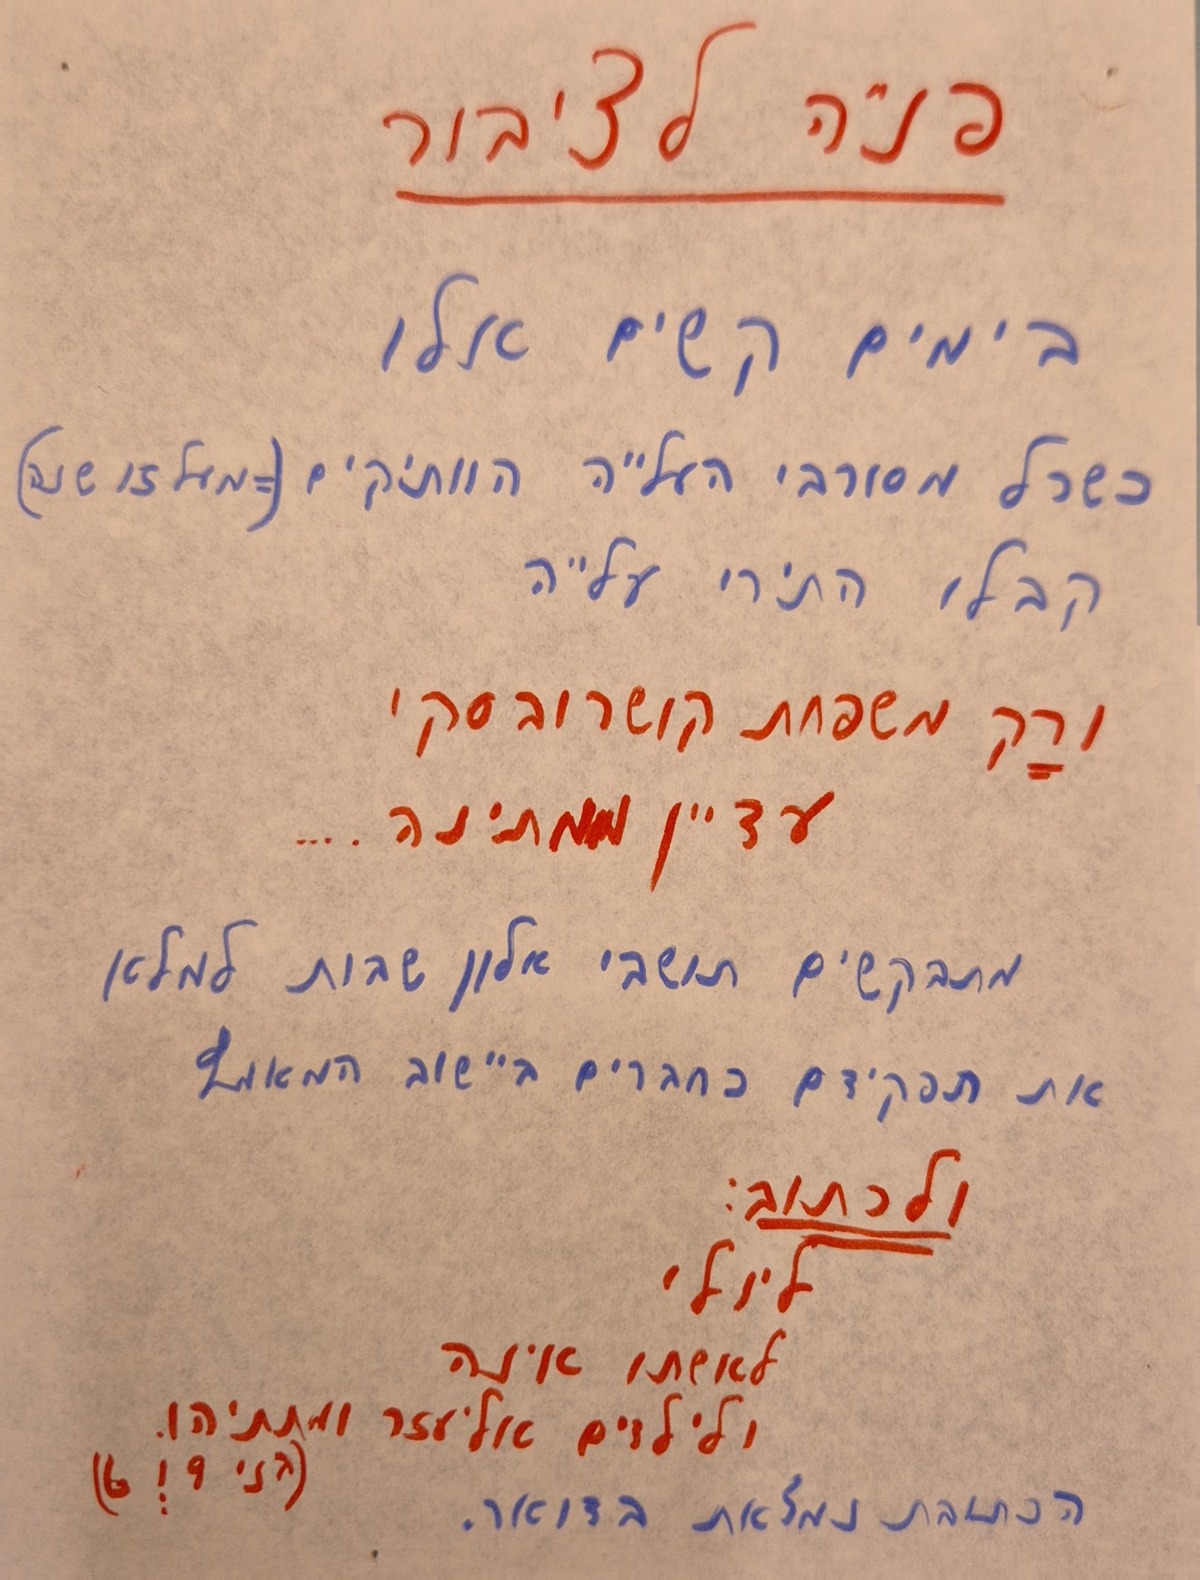 פנייה לציבור
בימים קשים אלו
כשכל מסורבי העלייה הוותיקים (=מעל 10 שנה)
קבלו התירי עלייה
ורק משפחת קושרובסקי
עדיין ממתינה ....
מתבקשים תושבי אלון שבות למלא
את תפקידם כחברים ביישוב המאמץ
ולכתוב:
ליולי
לאשתו אינה
ולילדים אליעזר ומתתיהו.
(בני 9 ו 6)
הכתובת נמצאת בדואר.